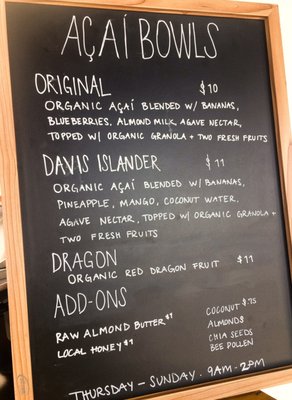 AÇAÍ BOWLS
ORIGINAL $10
ORGANIC AÇAÍ BLENDED W/ BANANAS,
BLUEBERRIES, ALMOND MILK, AGAVE NECTAR,
TOPPED W/ ORGANIC GRANOLA + TWO FRESH FRUITS
DAVIS ISLANDER $11
ORGANIC AÇAÍ BLENDED W/ BANANAS,
PINEAPPLE, MANGO, COCONUT WATER,
AGAVE NECTAR, TOPPED W/ ORGANIC GRANOLA +
TWO FRESH FRUITS
DRAGON $11
ORGANIC RED DRAGON FRUIT
ADD-ONS
RAW ALMOND BUTTER $1
LOCAL HONEY $1
COCONUT $.75
ALMONDS
CHIA SEEDS
BEE POLLEN
THURSDAY - SUNDAY. 9AM-2PM